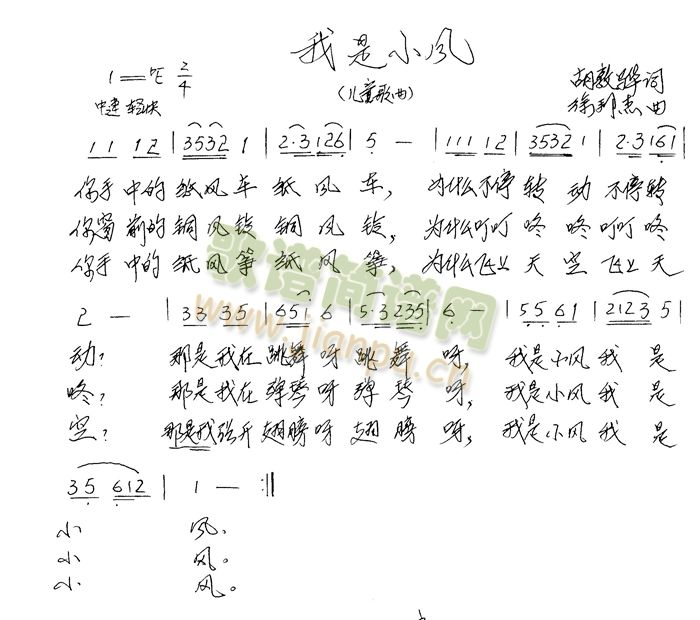 我是小风
(儿童歌曲)
1=ᵇE 2/4
中速 轻快
胡敦骅词
徐邦杰曲
11 12 | 3532 1 | 2·3126 | 5 — | 111 12 | 3532 1 | 2·3161 |
你手中的纸风车纸风车, 为什么不停转动不停转
你窗前的铜风铃铜风铃, 为什么叮叮咚咚叮叮咚
你手中的纸风筝纸风筝, 为什么飞上天空飞上天
2 — | 33 35 | 651 6 | 5·3235 | 6 — | 55 61 | 2123 5 |
动? 那是我在跳舞呀跳舞呀, 我是小风我是
咚? 那是我在弹琴呀弹琴呀, 我是小风我是
空? 那是我张开翅膀呀翅膀呀, 我是小风我是
35 612 | 1 — :||
小风.
小风。
小风。
歌谱简谱网
www.jianpu.cn